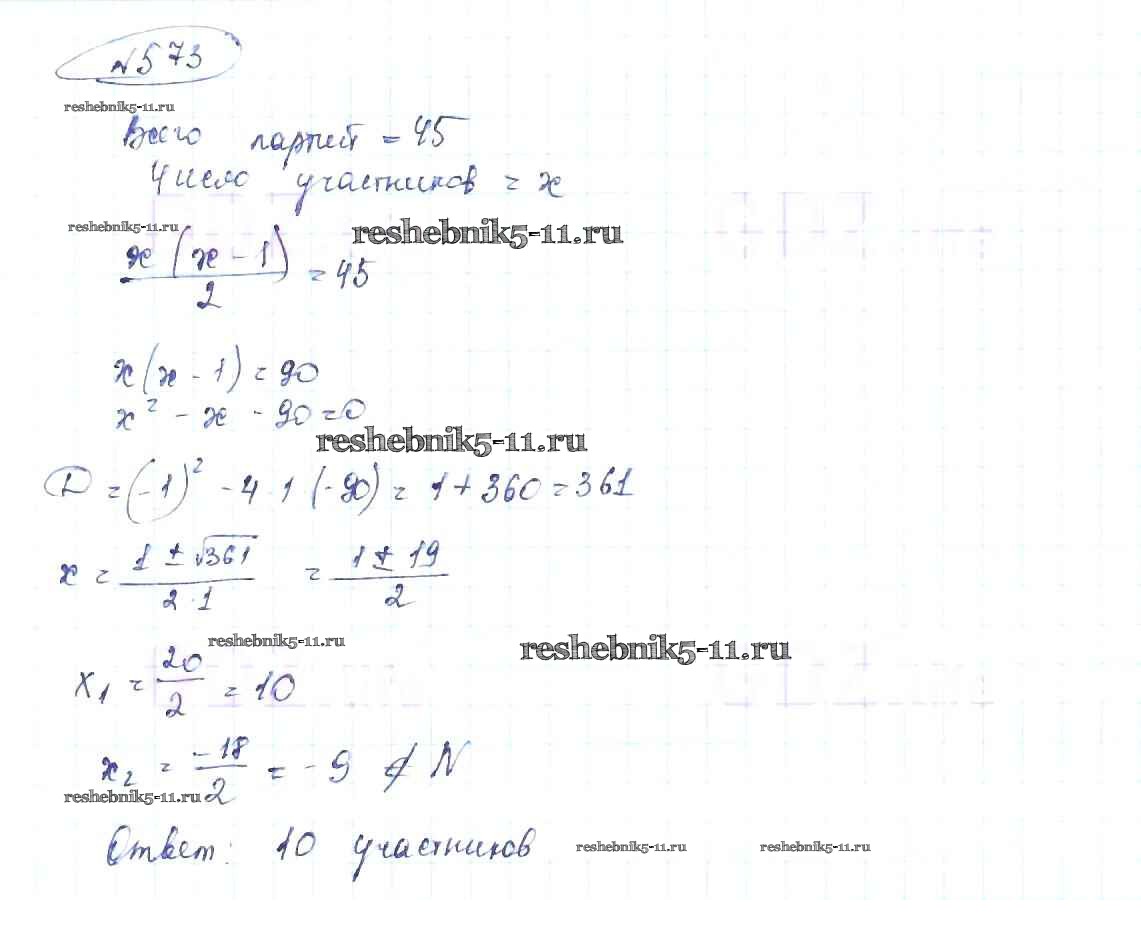 №573
reshebnik5-11.ru
Всего партий = 45
Число участников = x
reshebnik5-11.ru reshebnik5-11.ru
x(x - 1)/2 = 45
x(x - 1) = 90
x² - x - 90 = 0
reshebnik5-11.ru
D = (-1)² - 4·1(-90) = 1 + 360 = 361
x = (1 ± √361)/(2·1) = (1 ± 19)/2
reshebnik5-11.ru reshebnik5-11.ru
x₁ = 20/2 = 10
x₂ = -18/2 = -9 ∉ N
reshebnik5-11.ru
Ответ: 10 участников
reshebnik5-11.ru reshebnik5-11.ru